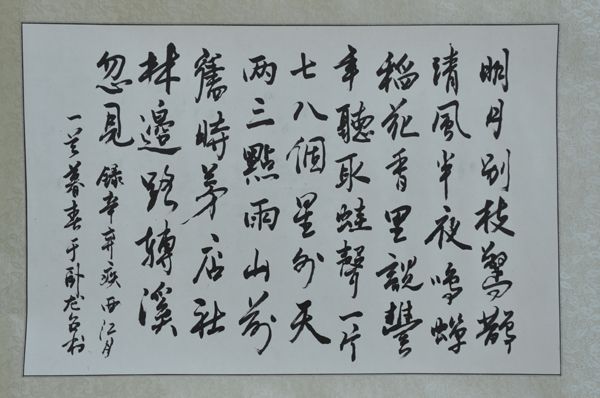 明月别枝驚鵲
清風半夜鳴蟬
稻花香里說豐
年聽取蛙聲一片
七八個星外天
兩三點雨山前
舊時茅店社
林邊路轉溪
忽見 錄辛弃疾西江月
暮春于卧龙